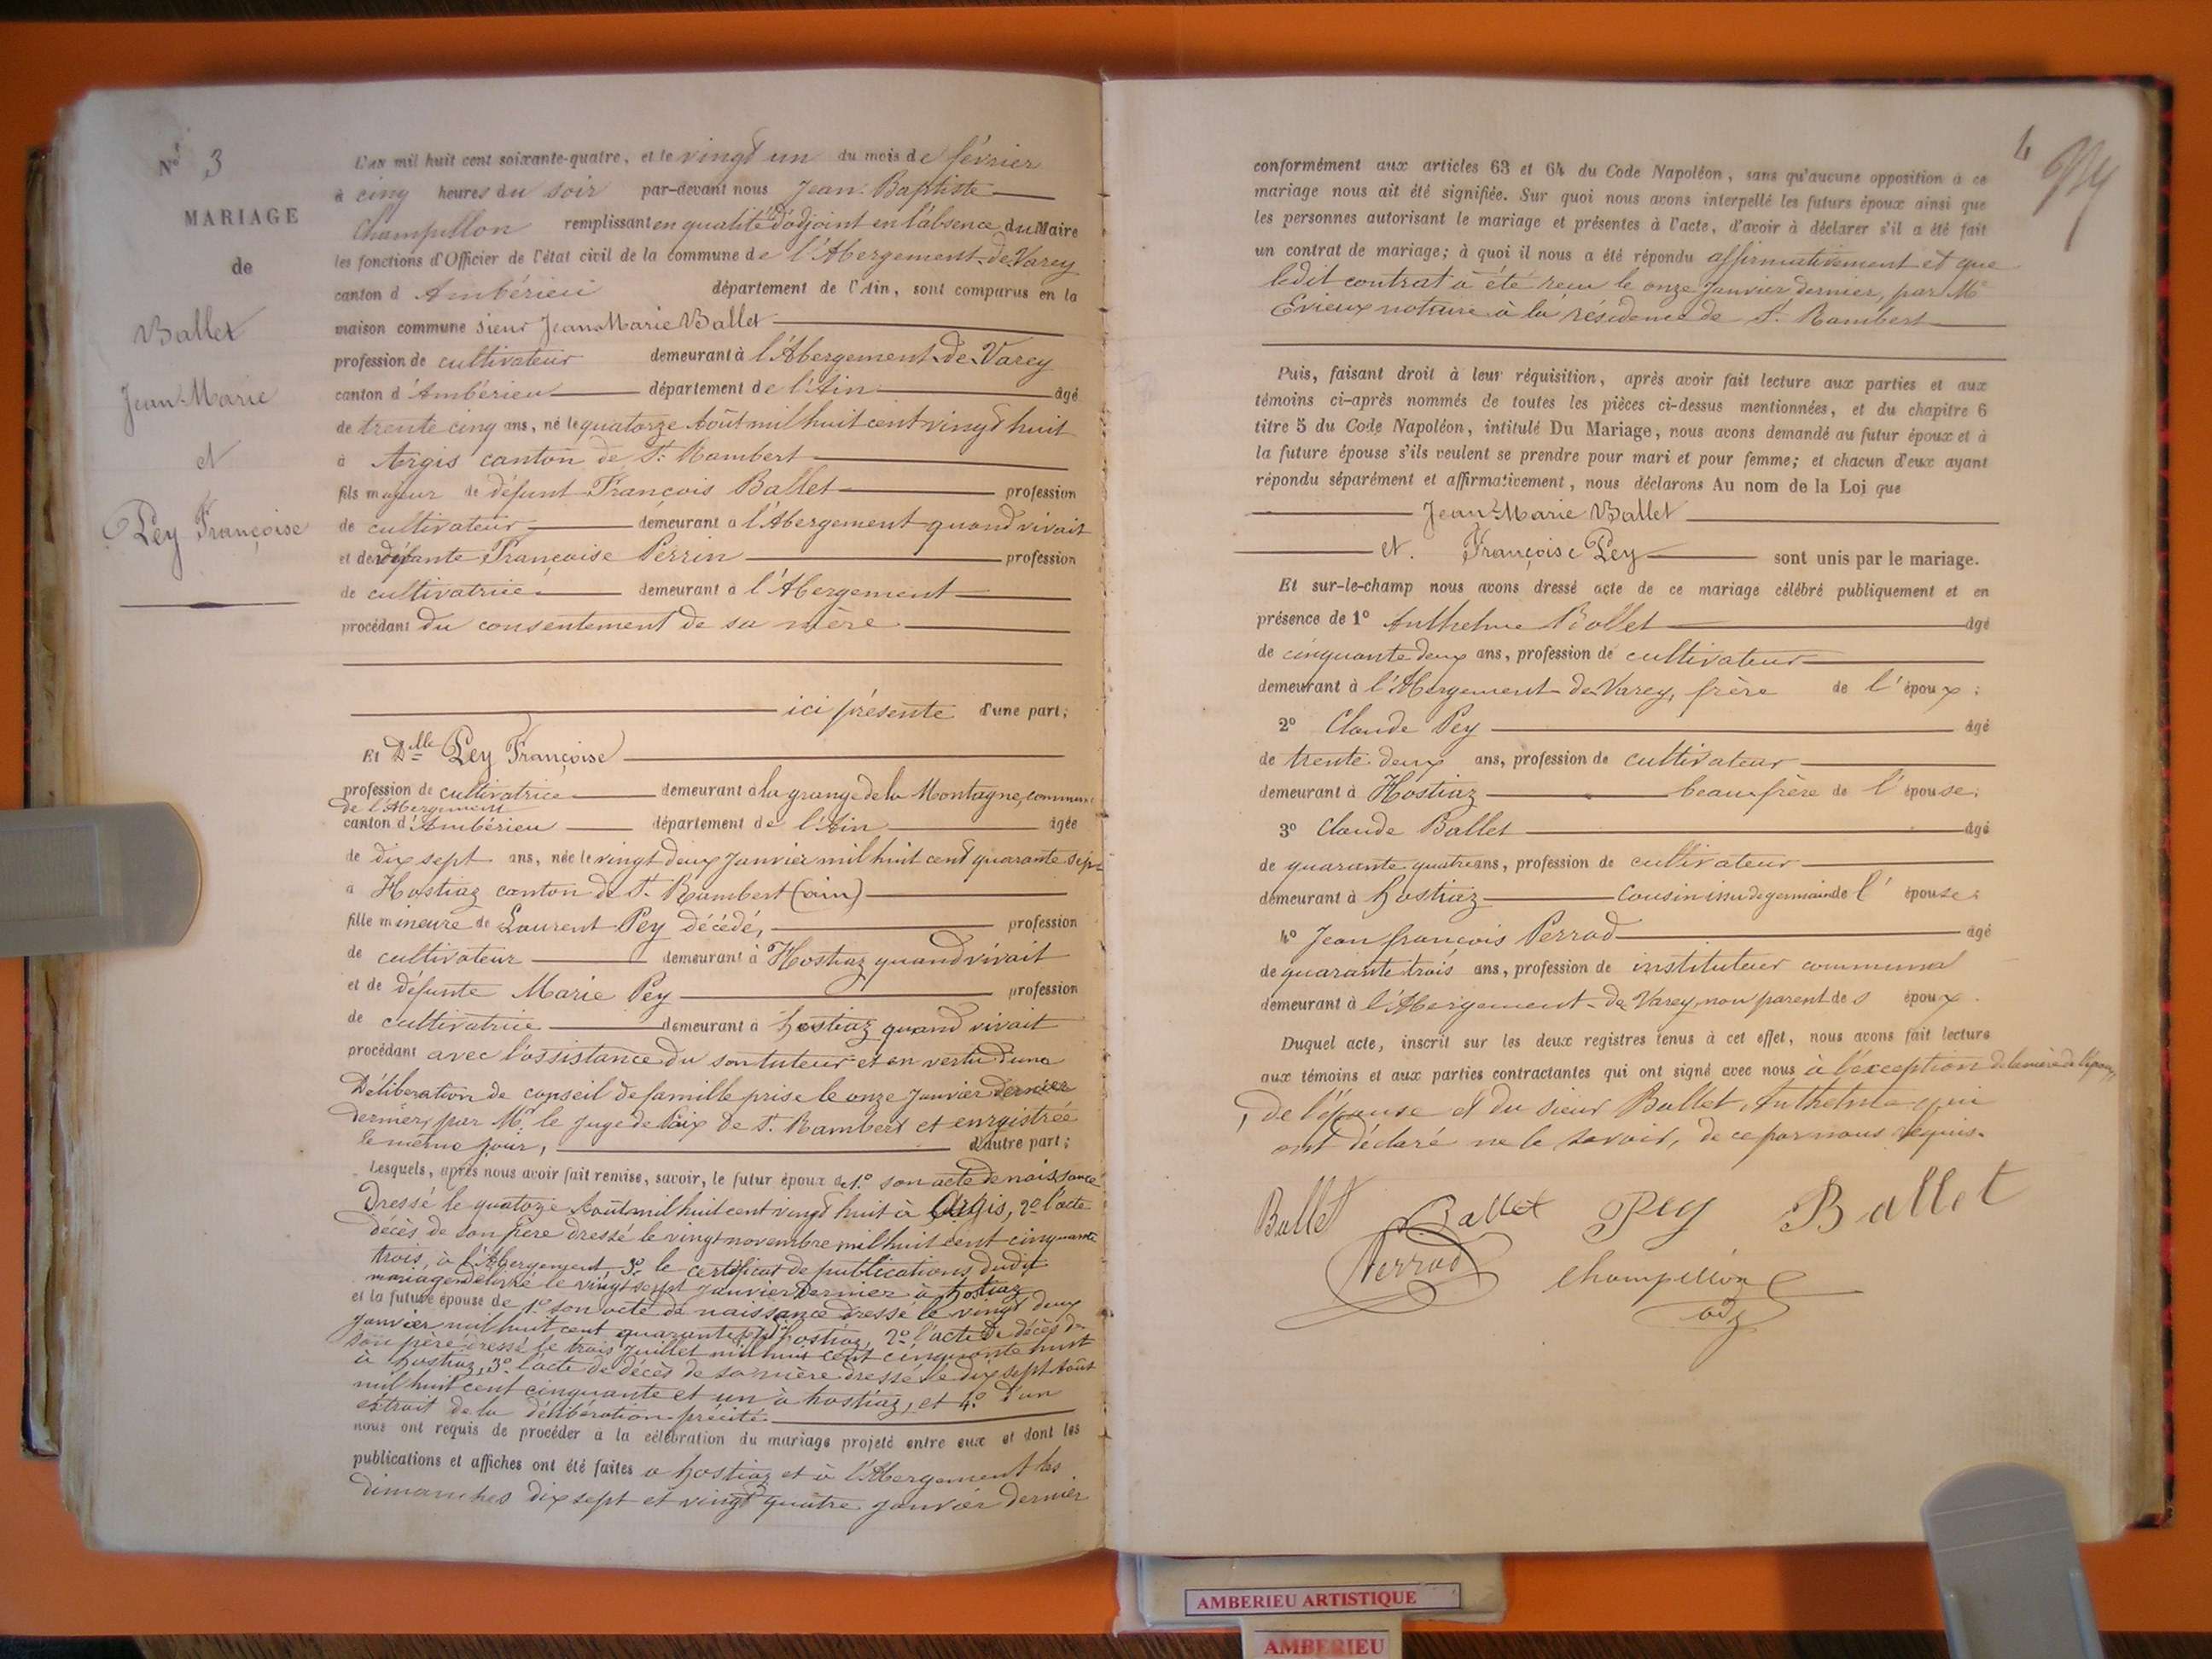 N° 3
MARIAGE
de
Ballet
Jean-Marie
et
Pey Françoise
L'an mil huit cent soixante-quatre, et le vingt un du mois de février
à cinq heures du soir par-devant nous Jean-Baptiste
Champillon remplissant en qualité d'adjoint en l'absence du Maire
les fonctions d'Officier de l'état civil de la commune de l'Abergement-de-Varey
canton d'Ambérieu département de l'Ain, sont comparus en la
maison commune sieur Jean Marie Ballet
profession de cultivateur demeurant à l'Abergement-de-Varey
canton d'Ambérieu département de l'Ain âgé
de trente cinq ans, né le quatorze Août mil huit cent vingt huit
à Argis canton de St. Rambert
fils majeur de défunt François Ballet profession
de cultivateur demeurant à l'Abergement quand vivait
et de Françoise Perrin profession
de cultivatrice demeurant à l'Abergement
procédant du consentement de sa mère
ici présente d'une part;
Et Dlle Pey Françoise
profession de cultivatrice demeurant à la grange de la Montagne, commune
de l'Abergement
canton d'Ambérieu département de l'Ain âgée
de dix sept ans, née le vingt deux Janvier mil huit cent quarante sept
à Hostiaz canton de St. Rambert (ain)
fille mineure de Laurent Pey décédé, profession
de cultivateur demeurant à Hostiaz quand vivait
et de défunte Marie Pey profession
de cultivatrice demeurant à hostiaz quand vivait
procédant avec l'assistance du son tuteur et en vertu d'une
Délibération de conseil de famille prise le onze Janvier dernier
dernier, par Mr. le Juge de Paix de St. Rambert et enrgistrée
le même jour, d'autre part;
Lesquels, après nous avoir fait remise, savoir, le futur époux de 1° son acte de naissance
Dressé le quatorze Août mil huit cent vingt huit à Argis, 2° l'acte
décès de son père dressé le vingt novembre mil huit cent cinquante
trois, à l'Abergement, 3° le certificat de publications dudit
mariage délivré le vingt sept Janvier dernier à hostiaz
et la future épouse de 1° son acte de naissance dressé le vingt deux
Janvier mil huit cent quarante sept à hostiaz, 2° l'acte de décès de
son père dressé le trois Juillet mil huit cent cinquante huit
à hostiaz, 3° l'acte de décès de sa mère dressé le dix sept Août
mil huit cent cinquante et un à hostiaz, et 4° d'un
extrait de la délibération précité
nous ont requis de procéder à la célébration du mariage projeté entre eux et dont les
publications et affiches ont été faites a hostiaz et à l'Abergement les
dimanches dix sept et vingt quatre Janvier dernier
4
conformément aux articles 63 et 64 du Code Napoléon, sans qu'aucune opposition à ce
mariage nous ait été signifiée. Sur quoi nous avons interpellé les futurs époux ainsi que
les personnes autorisant le mariage et présentes à l'acte, d'avoir à déclarer s'il a été fait
un contrat de mariage; à quoi il nous a été répondu affirmativement et que
ledit contrat à été reçu le onze Janvier dernier, par Me
Evieux notaire à la résidence de St. Rambert
Puis, faisant droit à leur réquisition, après avoir fait lecture aux parties et aux
témoins ci-après nommés de toutes les pièces ci-dessus mentionnées, et du chapitre 6
titre 5 du Code Napoléon, intitulé Du Mariage, nous avons demandé au futur époux et à
la future épouse s'ils veulent se prendre pour mari et pour femme; et chacun d'eux ayant
répondu séparément et affirmativement, nous déclarons Au nom de la Loi que
Jean-Marie Ballet
et. Françoise Pey sont unis par le mariage.
Et sur-le-champ nous avons dressé acte de ce mariage célébré publiquement et en
présence de 1° Anthelme Ballet âgé
de cinquante deux ans, profession de cultivateur
demeurant à l'Abergement-de-Varey, frère de l'époux;
2° Claude Pey âgé
de trente deux ans, profession de cultivateur
demeurant à Hostiaz beau frère de l'épouse;
3° Claude Ballet âgé
de quarante quatre ans, profession de cultivateur
demeurant à hostiaz cousin issu de germain de l'épouse;
4° Jean françois Perrod âgé
de quarante trois ans, profession de instituteur communal
demeurant à l'Abergement-de Varey non parent des époux.
Duquel acte, inscrit sur les deux registres tenus à cet effet, nous avons fait lecture
aux témoins et aux parties contractantes qui ont signé avec nous à l'exception de la mère de l'époux,
de l'épouse et du sieur Ballet Anthelme qui
ont déclaré ne le savoir, de ce par nous requis.
Ballet Ballet Pey Ballet
Perrod Champillon
adj
AMBERIEU ARTISTIQUE
AMBERIEU